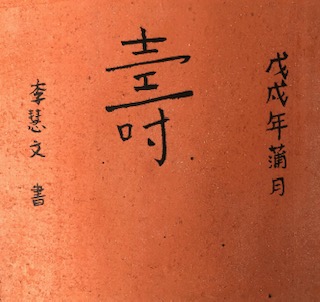 戊戌年蒲月
壽
李慧文 書